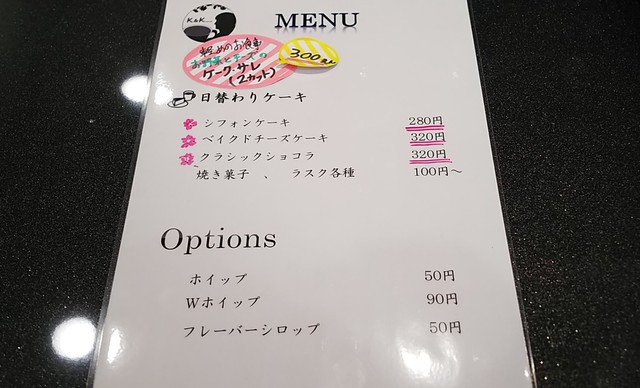 K&K
MENU
軽めのお食事
お野菜とチーズの
ケーク・サレ
(2カット)
300円
日替わりケーキ
シフォンケーキ 280円
ベイクドチーズケーキ 320円
クラシックショコラ 320円
焼き菓子 、 ラスク各種 100円～
Options
ホイップ 50円
Wホイップ 90円
フレーバーシロップ 50円